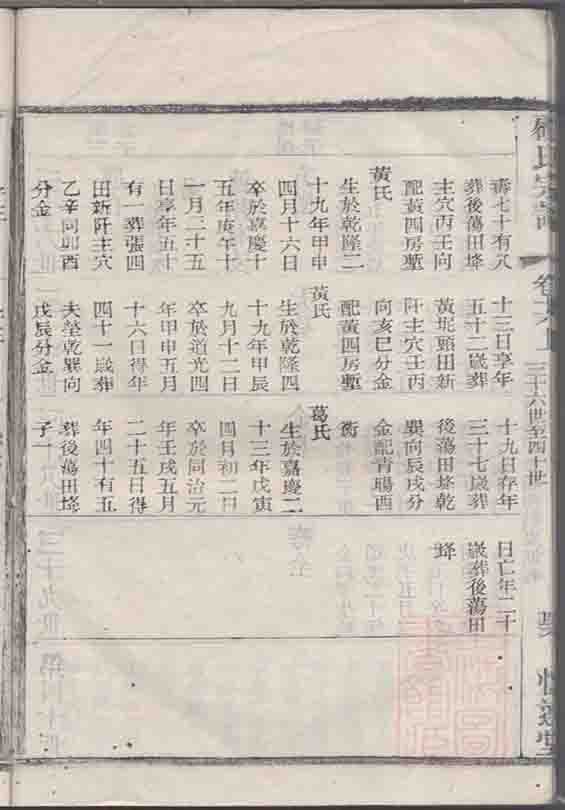 氏宗譜
三十六世至四十世
壽七十有八
葬後蕩田埄
主穴丙壬向
配黃四房塹
黃氏
生於乾隆二
十九年甲申
四月十六日
卒於嘉慶十
五年庚午十
一月二十五
日享年五十
有一葬張四
田新阡主穴
乙辛向卯酉
分金
十三日享年
五十二歲葬
黃坭頭田新
阡主穴壬丙
向亥巳分金
配黃四房塹
黃氏
生於乾隆四
十九年甲辰
九月十二日
卒於道光四
年甲申五月
十六日得年
四十一歲葬
夫塋乾巽向
戊辰分金
十九日存年
三十七歲葬
後蕩田埄乾
巽向辰戌分
金配青暘酉
衖
葛氏
生於嘉慶二
十三年戊寅
四月初二日
卒於同治元
年壬戌五月
二十五日得
年四十有五
葬後蕩田埄
子一
日亡年二十
歲葬後蕩田
埄